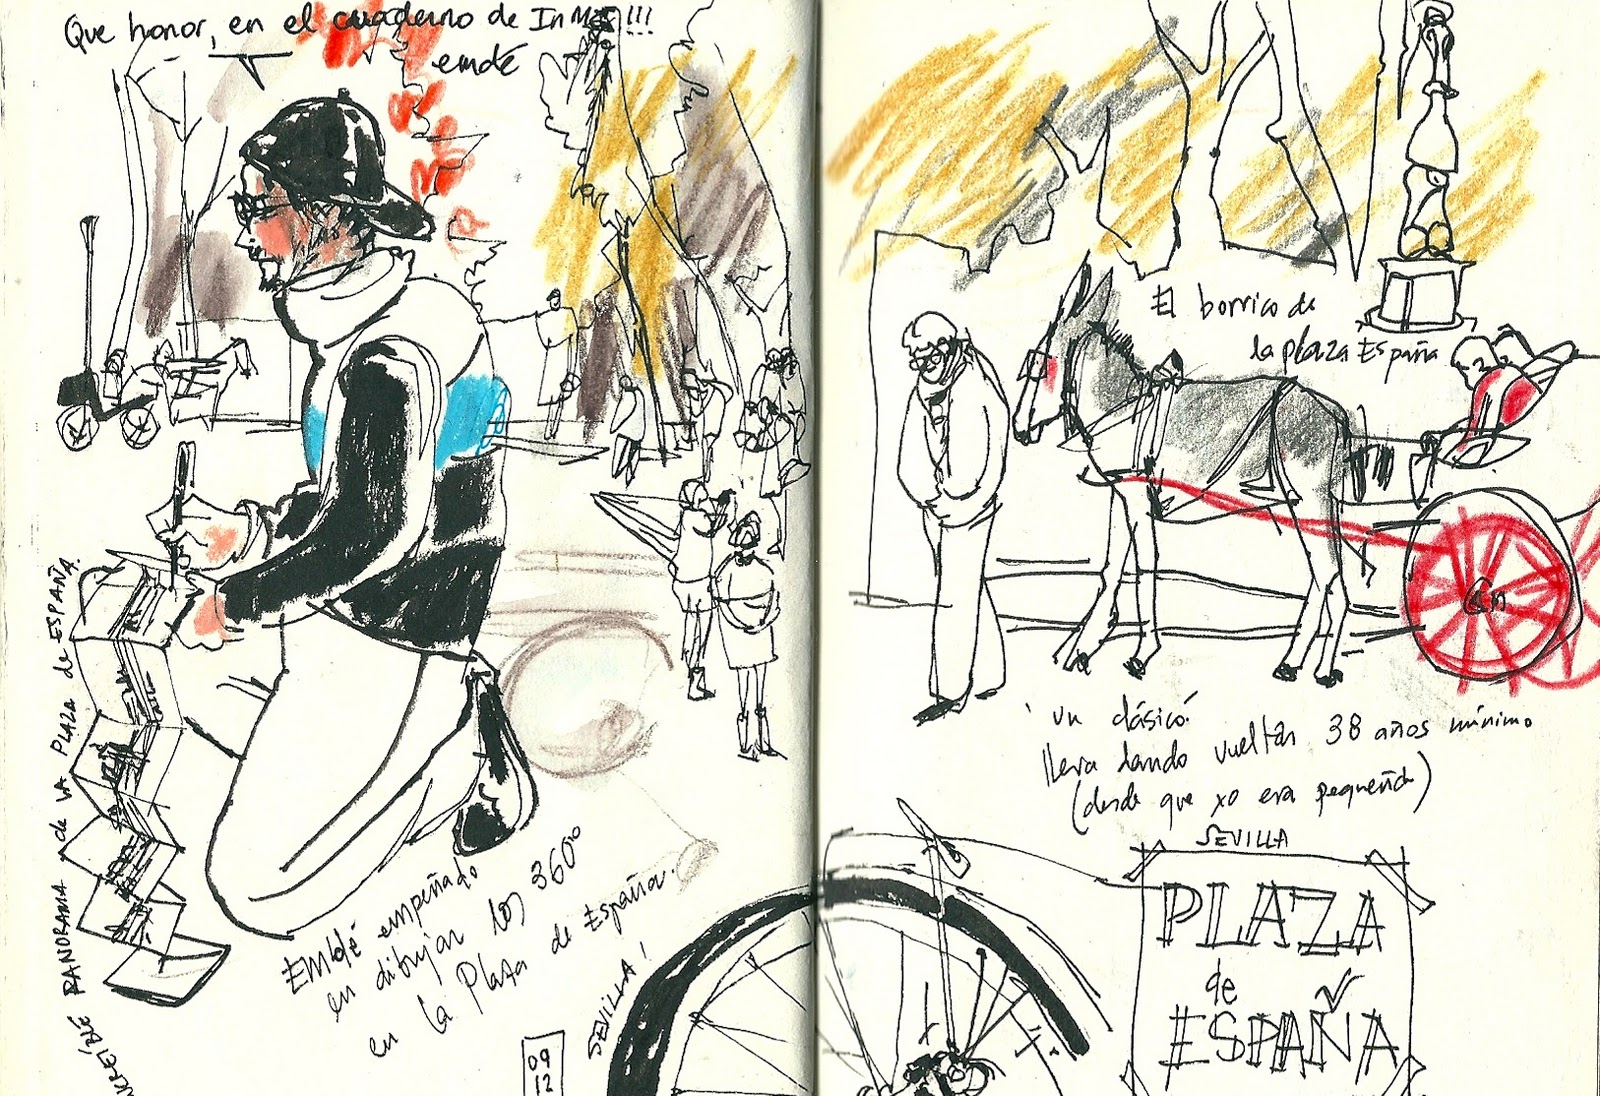 Que honor, en el cuaderno de Inma!!!
emdé
INCREIBLE PANORAMA de LA PLAZA de ESPAÑA
Emdé empeñado
en dibujar los 360º
en la Plaza de España.
SEVILLA!
09
12
El borrico de
la plaza España
'un clásico'
lleva dando vueltas 38 años mínimo
(desde que yo era pequeña)
SEVILLA
PLAZA
de
ESPAÑA